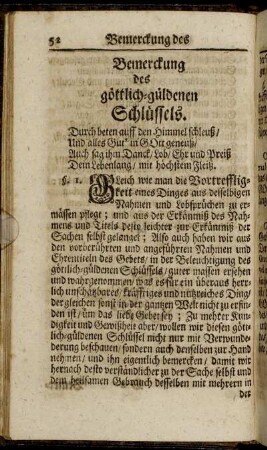 52 Bemerckung des
Bemerckung
des
göttlich-güldenen
Schlüssels.
Durch beten auff den Himmel schleuß/
Und alles Gut' in GOtt geneuß/
Auch sag ihm Danck/ Lob/ Ehr und Preiß
Dein Lebenlang/ mit höchstem Fleiß.
§. 1. GLeich wie man die Vortrefflig-
keit eines Dinges aus desselbigen
Nahmen und Lobsprüchen zu er-
mässen pflegt; und aus der Erkäntniß des Nah-
mens und Tituls desto leichter zur Erkäntniß der
Sachen selbst gelanget; Also auch haben wir aus
den vorberührten und angeführten Nahmen und
Ehrentiteln des Gebets/ in der Beleuchtigung des
göttlich-güldenen Schlüssels/ guter massen ersehen
und wahrgenommen/ was es für ein überaus herr-
lich/unschätzbares/ kräfftiges und nützreiches Ding/
der gleichen sonst in der gantzen Welt nicht zu erfin-
den ist/ um das liebe Gebet sey; Zu mehrer Kun-
digkeit und Gewißheit aber/ wollen wir diesen gött-
lich-güldenen Schlüssel nicht nur mit Verwunde-
rung beschauen/ sondern auch denselben zur Hand
nehmen/ und ihn eigentlich bemercken/ damit wir
hernach desto verständlicher zu der Sache selbst und
dem heilsamen Gebrauch desselben mit mehrern in
der